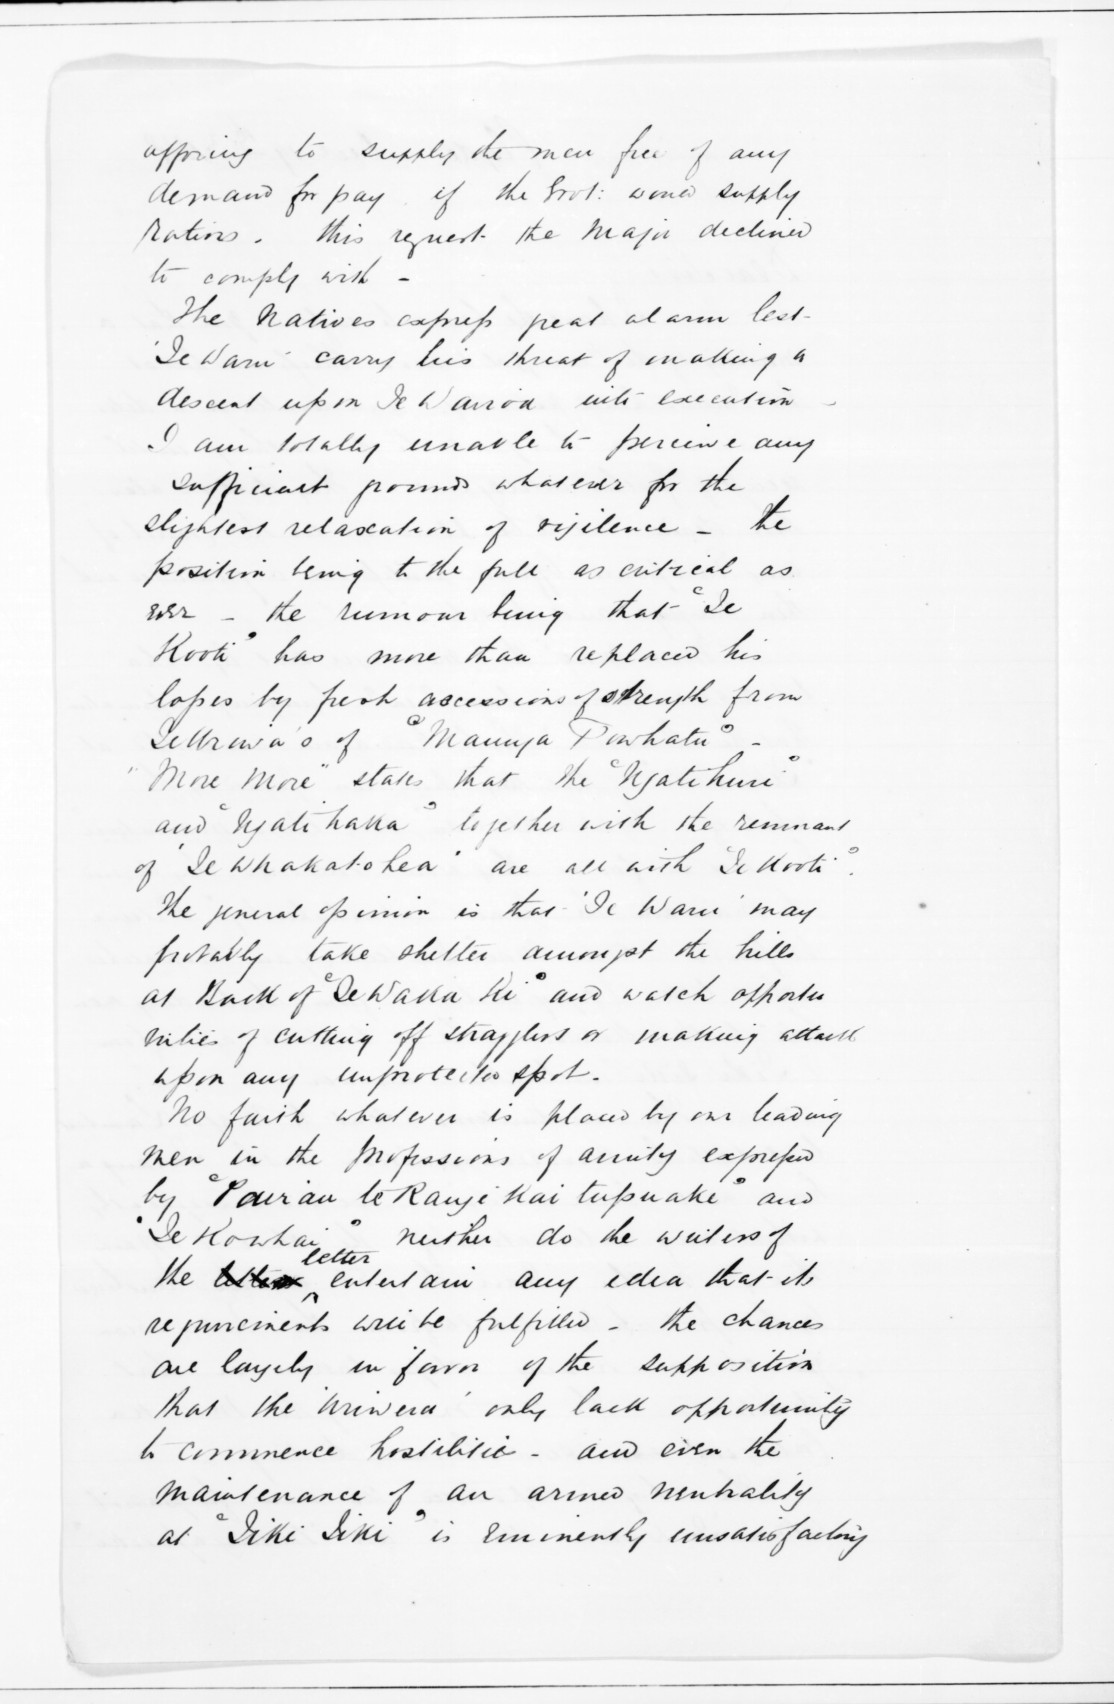 offering to supply the men free of any
demand for pay if the Govt: would supply
Rations. this request the Major declined
to comply with -
The Natives express great alarm lest
'Te Waru' carry his threat of making a
descent upon Te Wairoa into execution -
I am totally unable to perceive any
sufficient grounds whatever for the
slightest relaxation of vigilence - the
position being to the full as critical as
ever - the rumour being that "Te
Kooti" has more than replaced his
losses by fresh accessions of strength from
Te Urewa's of "Maunga Powhatu" -
"More More" states that the "Ngatihuri"
and "Ngatihaka" together with the remnant
of 'Te Whakatohea' are all with "Te Kooti".
The general opinion is that 'Te Waru' may
probably take shelter amongst the hills
at Back of "Te Waka Ki" and watch opportu
nities of cutting off stragglers or making attack
upon any unprotected spot.
No faith whatever is placed by our leading
men in the Professions of amity expressed
by "Paerau te Rangi Kai tupuake" and
"Te Kowhai" neither do the writers of
the letter entertain any idea that its
requirements will be fulfilled - the chances
are largely in favor of the supposition
that the 'Uriwera' only lack opportunity
to commence hostilitie - and even the
maintenance of an armed neutrality
at "Tiki Tiki" is eminently unsatisfactory